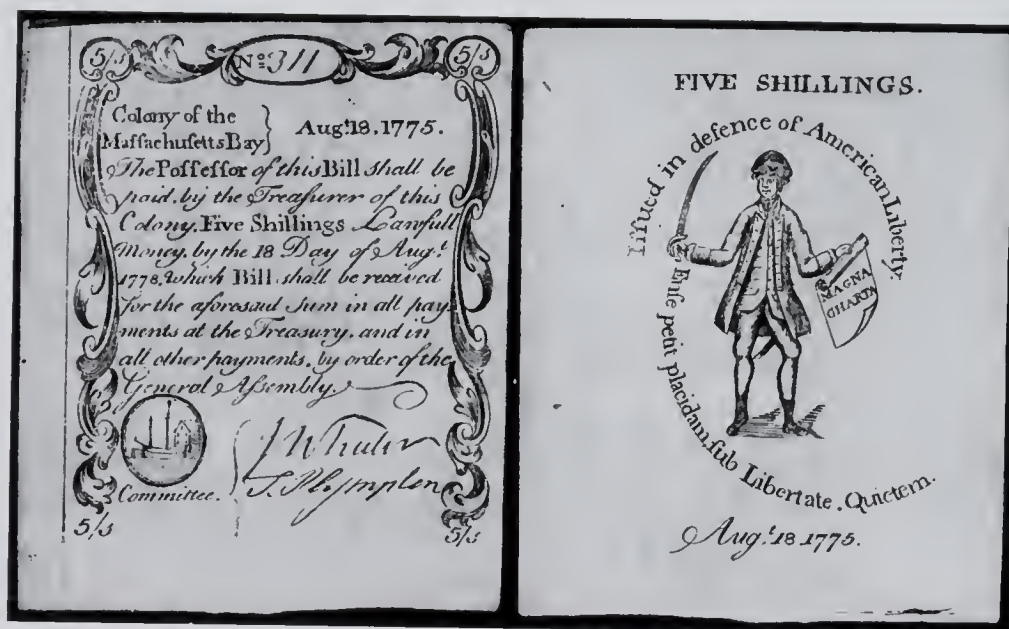 5/s
No. 311
5/s
Colony of the
Maſſachuſetts Bay
Augt. 18, 1775.
The Poſſeſſor of this Bill shall be
paid, by the Treaſurer of this
Colony, Five Shillings Lawfull
Money, by the 18 Day of Augt.
1778, which Bill shall be received
for the aforesaid Sum in all pay
ments at the Treasury, and in
all other payments, by order of the
General Aſsembly.
Committee.
5/s
5/s
FIVE SHILLINGS.
Iſſued in defence of American Liberty.
Enſe petit placidam, ſub Libertate, Quietem.
MAGNA
CHARTA
Augt. 18 1775.